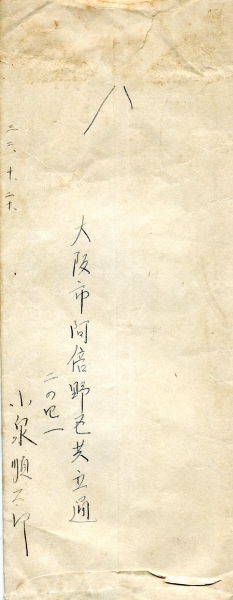 二二、十、二十、
大阪市阿倍野区共立通
二の四一
小泉順三郎